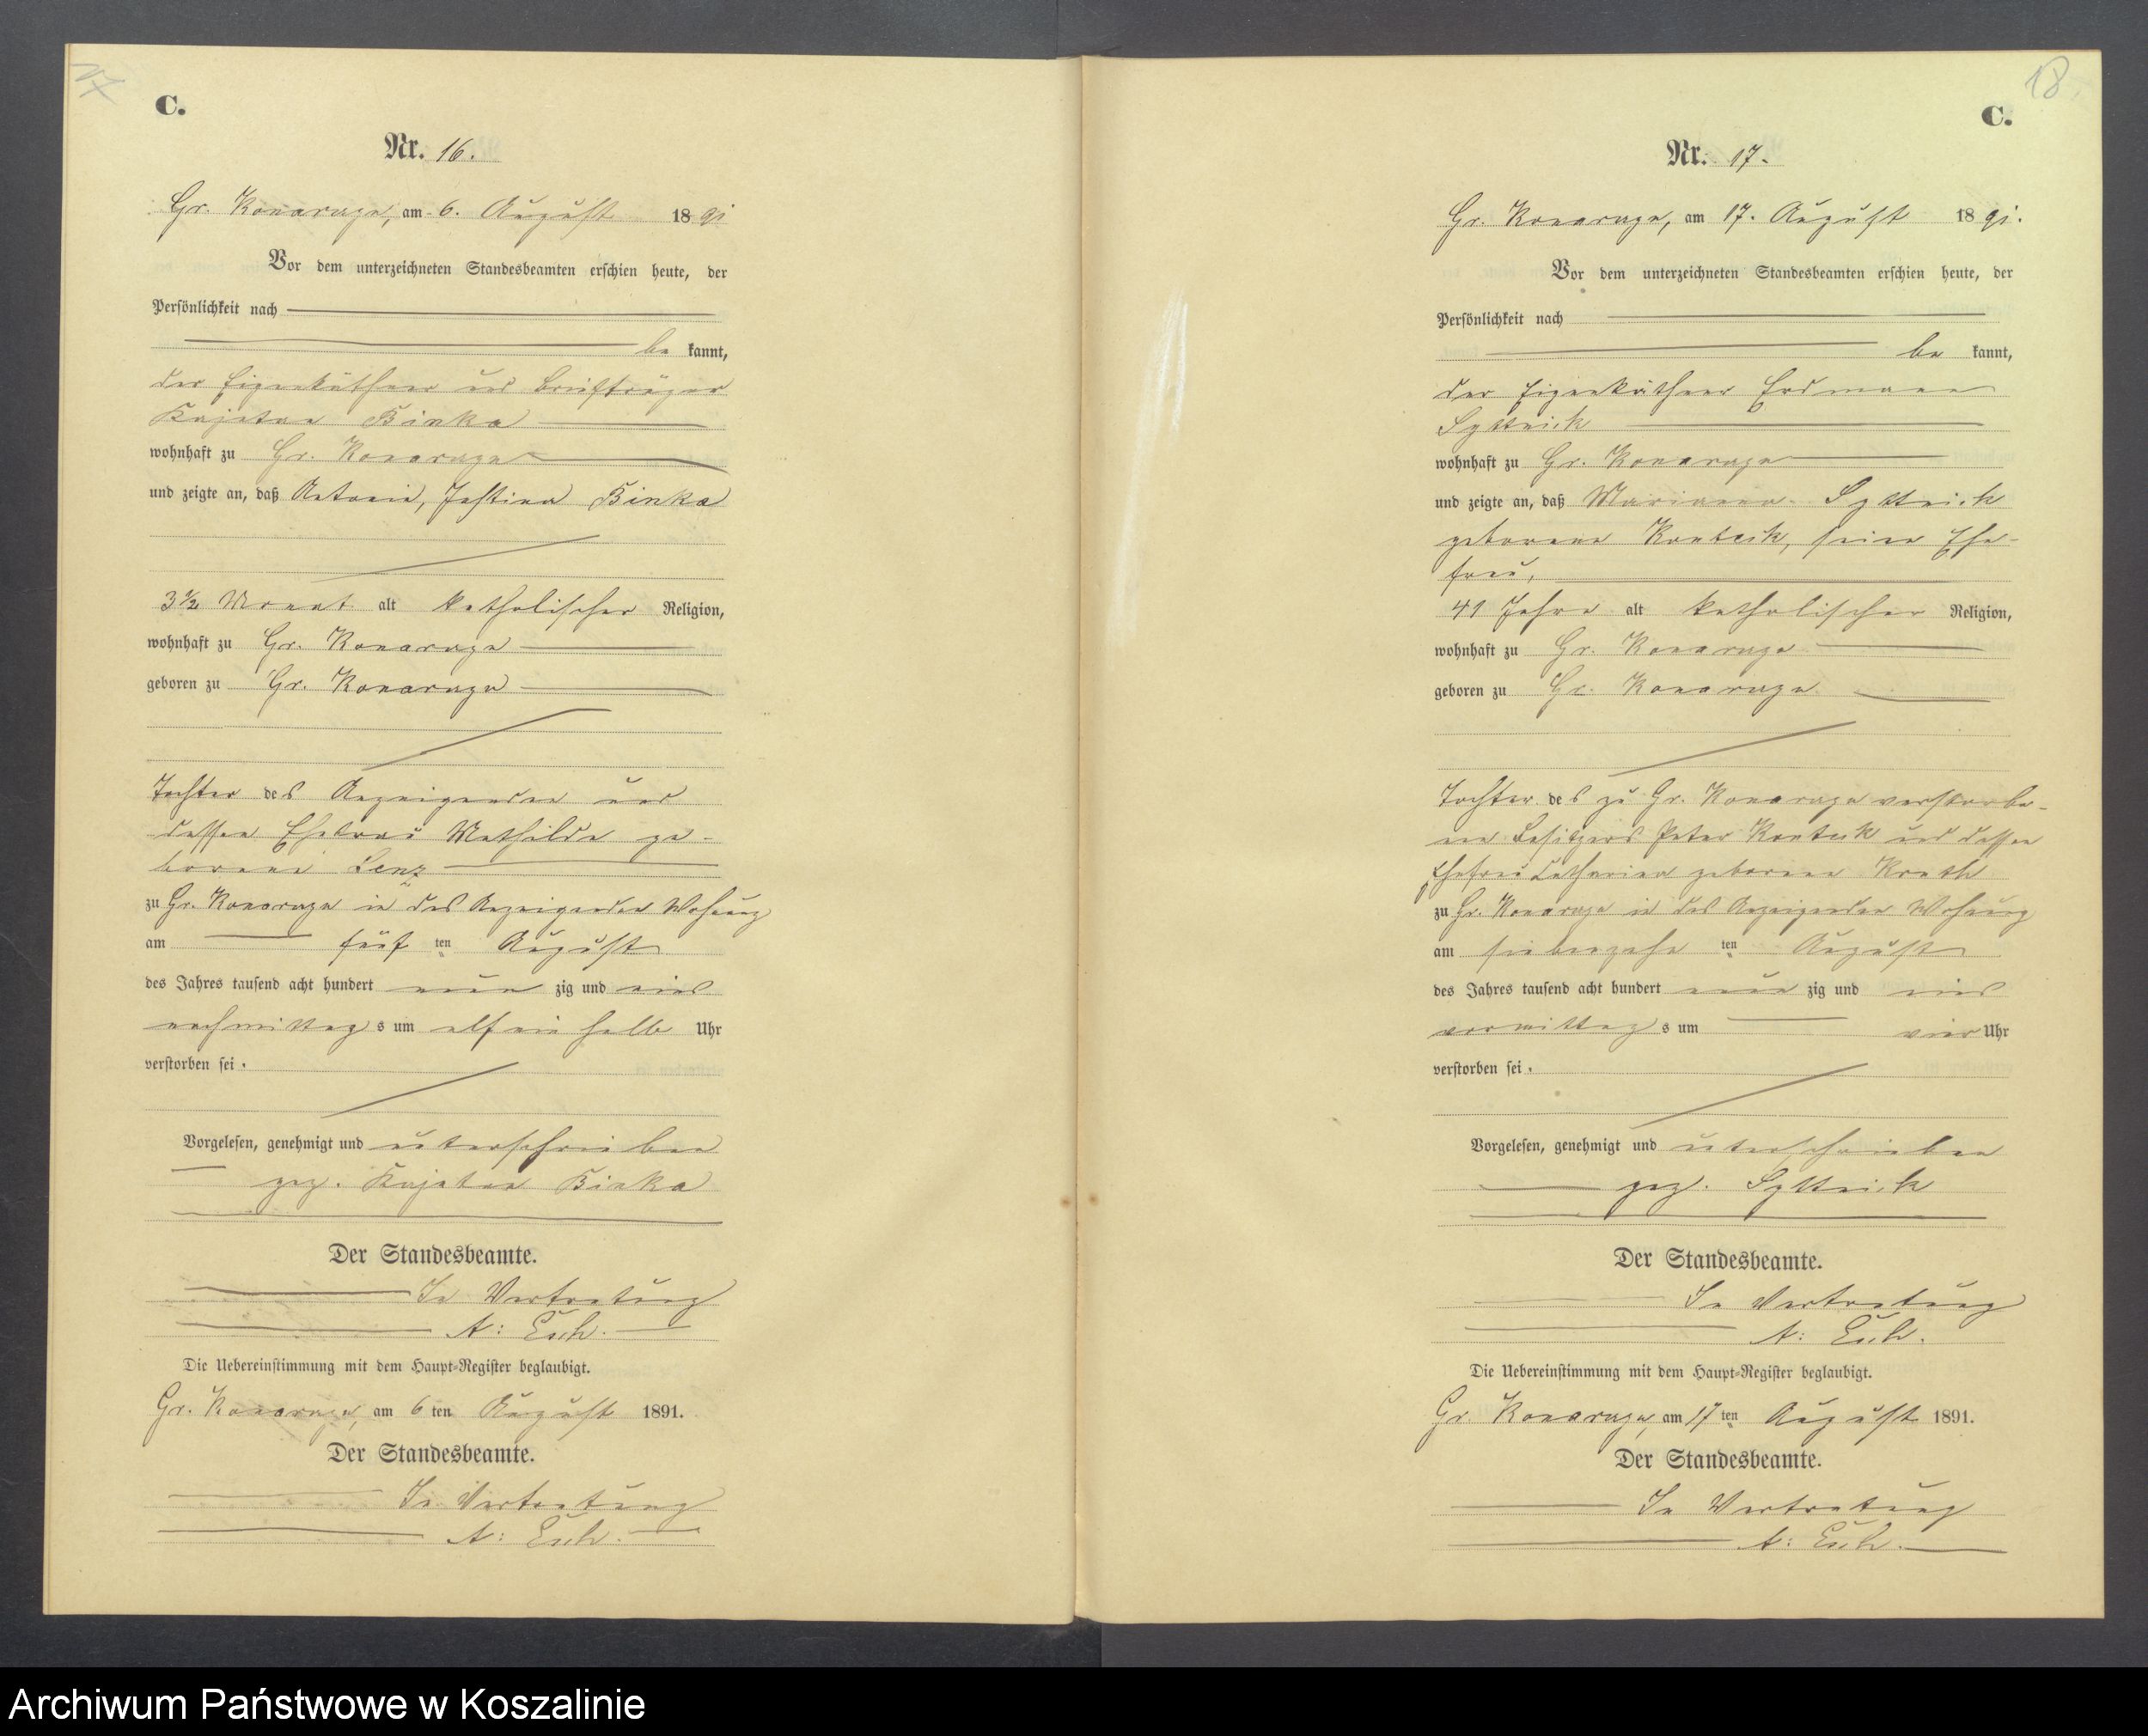 C.
Nr. 16.
Gr. Konarczyn, am 6. August 1891
Vor dem unterzeichneten Standesbeamten erschien heute, der
Persönlichkeit nach
be kannt,
der Eigenkäthner und Briefträger
Kajetan Binka
wohnhaft zu Gr. Konarczyn
und zeigte an, daß Antonie, Justina Binka
3½ Monat alt katholischer Religion,
wohnhaft zu Gr. Konarczyn
geboren zu Gr. Konarczyn
Tochter des Anzeigenden und
dessen Ehefrau Mathilde ge-
borene Lenz
zu Gr. Konarczyn in des Anzeigenden Wohnung
am fünften August
des Jahres tausend acht hundert neunzig und eins
nachmittags um elfein halb Uhr
verstorben sei.
Vorgelesen, genehmigt und unterschrieben
gez. Kajetan Binka
Der Standesbeamte.
In Vertretung
A:
Die Uebereinstimmung mit dem Haupt-Register beglaubigt.
Gr. Konarczyn, am 6ten August 1891.
Der Standesbeamte.
In Vertretung
A:
18.
C.
Nr. 17.
Gr. Konarczyn, am 17. August 1891.
Vor dem unterzeichneten Standesbeamten erschien heute, der
Persönlichkeit nach
be kannt,
der Eigenkäthner Erdmann
wohnhaft zu Gr. Konarczyn
und zeigte an, daß Marianna
geborene seine Ehe-
frau,
41 Jahre alt katholischer Religion,
wohnhaft zu Gr. Konarczyn
geboren zu Gr. Konarczyn
Tochter des zu Gr. Konarczyn verstorbe-
nen Besitzers Peter und dessen
Ehefrau Catharina geborene
zu Gr. Konarczyn in des Anzeigenden Wohnung
am siebenzehnten August
des Jahres tausend acht hundert neunzig und eins
vormittags um vier Uhr
verstorben sei.
Vorgelesen, genehmigt und unterschrieben
gez.
Der Standesbeamte.
In Vertretung
A:
Die Uebereinstimmung mit dem Haupt-Register beglaubigt.
Gr. Konarczyn, am 17ten August 1891.
Der Standesbeamte.
In Vertretung
A:
Archiwum Państwowe w Koszalinie